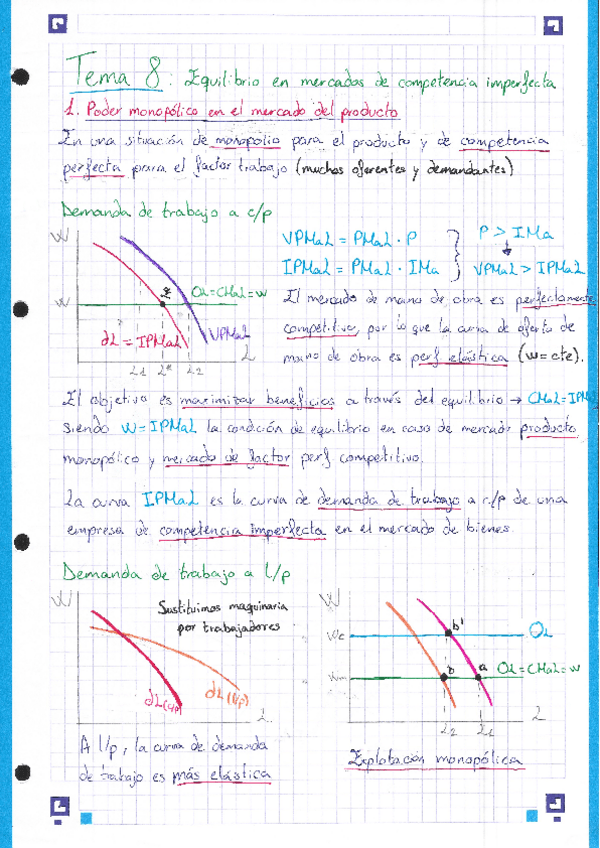 Tema 8: Equilibrio en mercados de competencia imperfecta
1. Poder monopólico en el mercado del producto
En una situación de monopolio para el producto y de competencia
perfecta para el factor trabajo (muchos oferentes y demandantes)
Demanda de trabajo a c/p
W
VPMaL = PMaL · P
P > IMa
IPMaL = PMaL · IMa
VPMaL > IPMaL
OL=CMaL=w
w
dL = IPMaL
VPMaL
L
L1 L* L2
El mercado de mano de obra es perfectamente
competitivo, por lo que la curva de oferta de
mano de obra es perf elástica (w=cte).
El objetivo es maximizar beneficios a través del equilibrio → CMaL=IPM
Siendo w=IPMaL la condición de equilibrio en caso de mercado producto
monopólico y mercado de factor perf competitivo.
La curva IPMaL es la curva de demanda de trabajo a c/p de una
empresa de competencia imperfecta en el mercado de bienes.
Demanda de trabajo a l/p
W
Sustituimos maquinaria
por trabajadores
dL(c/p)
dL(l/p)
L
W
b'
OL
wc
b
a
OL=CMaL=w
wm
L2 L1
L
A l/p, la curva de demanda
de trabajo es más elástica
Explotación monopólica